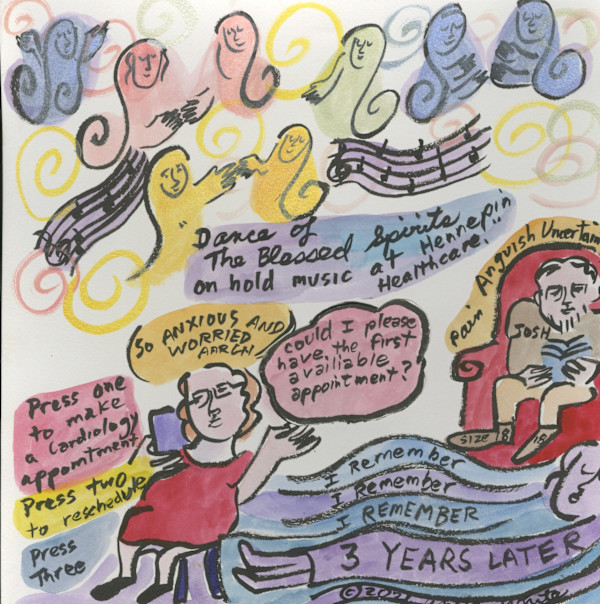 Dance of
The Blessed Spirits
on hold music at Hennepin
Healthcare.
Pain Anguish
SO ANXIOUS AND
WORRIED
AARGH
could I please
have the first
availiable
appointment?
JOSH
Press one
to make
a cardiology
appointment
Press two
to reschedule
Press
Three
SIZE 18
18
I Remember
I Remember
I REMEMBER
3 YEARS LATER